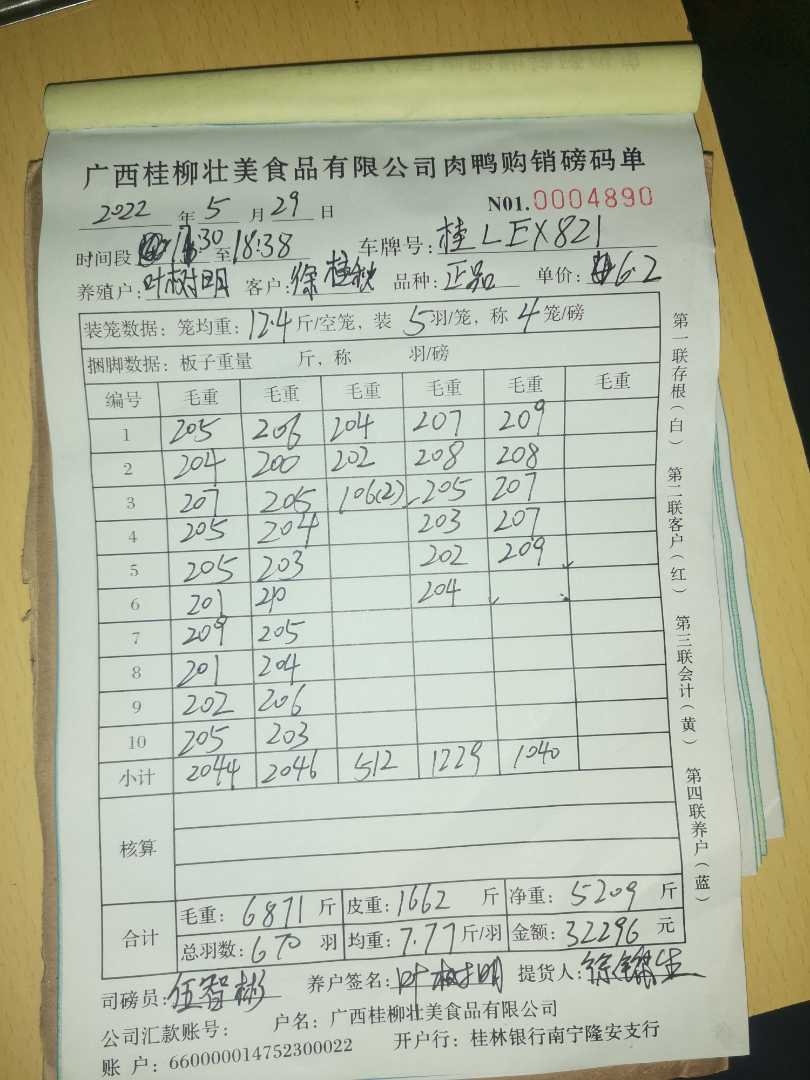 广西桂柳壮美食品有限公司肉鸭购销磅码单
2022 年 5 月 29 日 N01.0004890
时间段 17:30 至 18:38 车牌号: 桂LEX821
养殖户: 叶树明 客户: 徐桂秋 品种: 正品 单价: 6.2
装笼数据: 笼均重: 12.4 斤/空笼, 装 5 羽/笼, 称 4 笼/磅
捆脚数据: 板子重量 斤, 称 羽/磅
编号 毛重 毛重 毛重 毛重 毛重 毛重
1 205 206 204 207 209
2 204 200 202 208 208
3 207 205 106(2) 205 207
4 205 204 203 207
5 205 203 202 209
6 201 210 204
7 209 205
8 201 204
9 202 206
10 205 203
小计 2044 2046 512 1229 1040
核算
合计 毛重: 6871 斤 皮重: 1662 斤 净重: 5209 斤
总羽数: 670 羽 均重: 7.77 斤/羽 金额: 32296 元
司磅员: 伍智彬 养户签名: 叶树明 提货人: 徐
公司汇款账号: 户名: 广西桂柳壮美食品有限公司
账 户: 660000014752300022 开户行: 桂林银行南宁隆安支行
第一联存根(白) 第二联客户(红) 第三联会计(黄) 第四联养户(蓝)